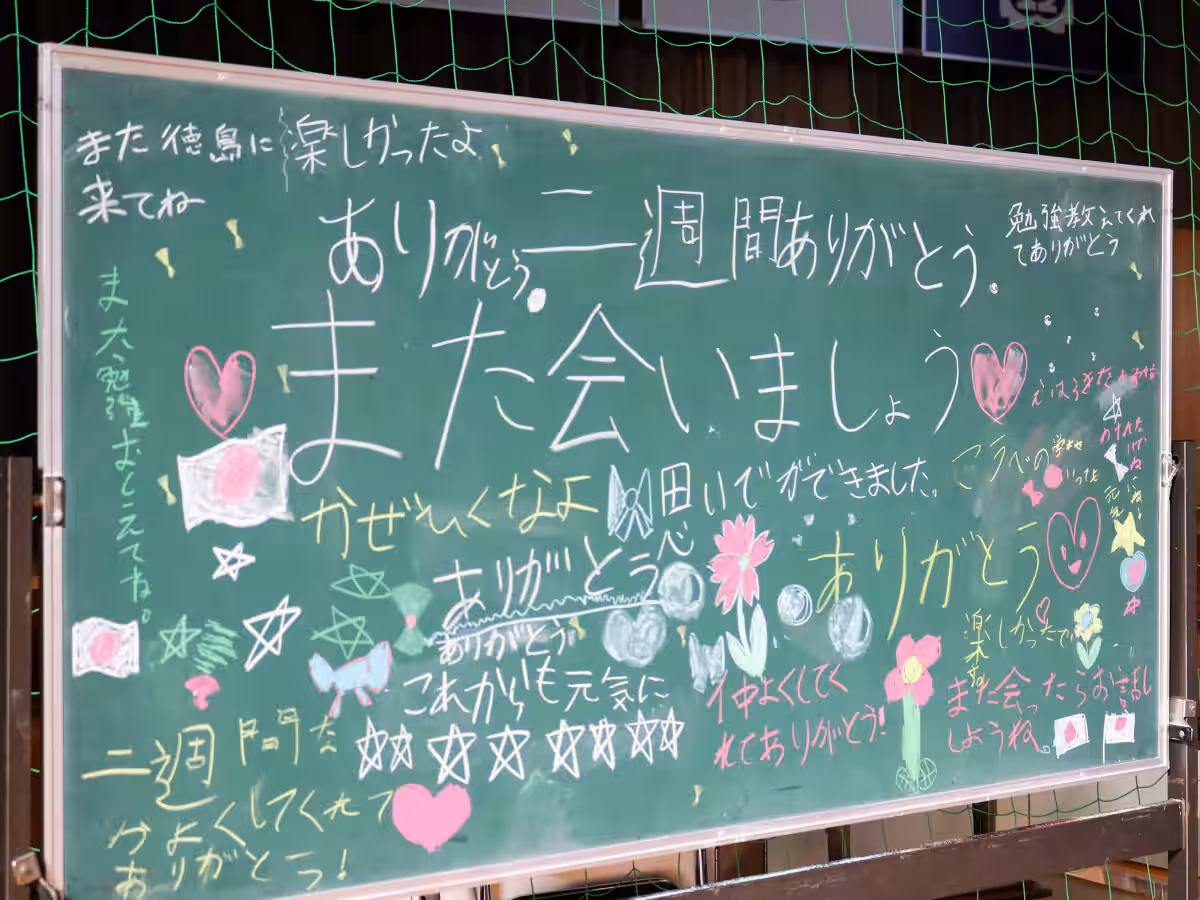 また徳島に
来てね
楽しかったよ
ありがとう
二週間ありがとう。
勉強教えてくれ
てありがとう
また会いましょう
また勉強おしえてね。
かぜひくなよ
ができました。
ありがとう
ありがとう
ありがとう
これからも元気に
楽しかったです
仲よくしてく
れてありがとう!
また会ったらお話し
しようね。
二週間な
かよくしてくれて
ありがとう!